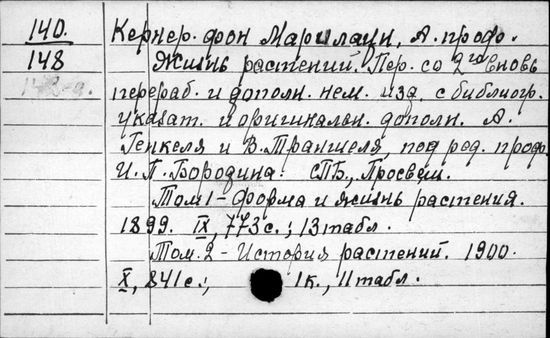 140. Кернер. фон Марилаун, А. проф.
148 Жизнь растений. Пер. со 2го вновь
перераб. и дополн. нем. изд. с библиогр.
указат. и оригинальн. дополн. А.
Генкеля и В. Траншеля, под ред. проф.
И. П. Бородина. СПБ., Просвещ.
Том 1 - Форма и жизнь растения.
1899. IX, 773 с.; 13 табл.
Том. 2 - История растений. 1900.
X, 841 с.; 1 к., 11 табл.